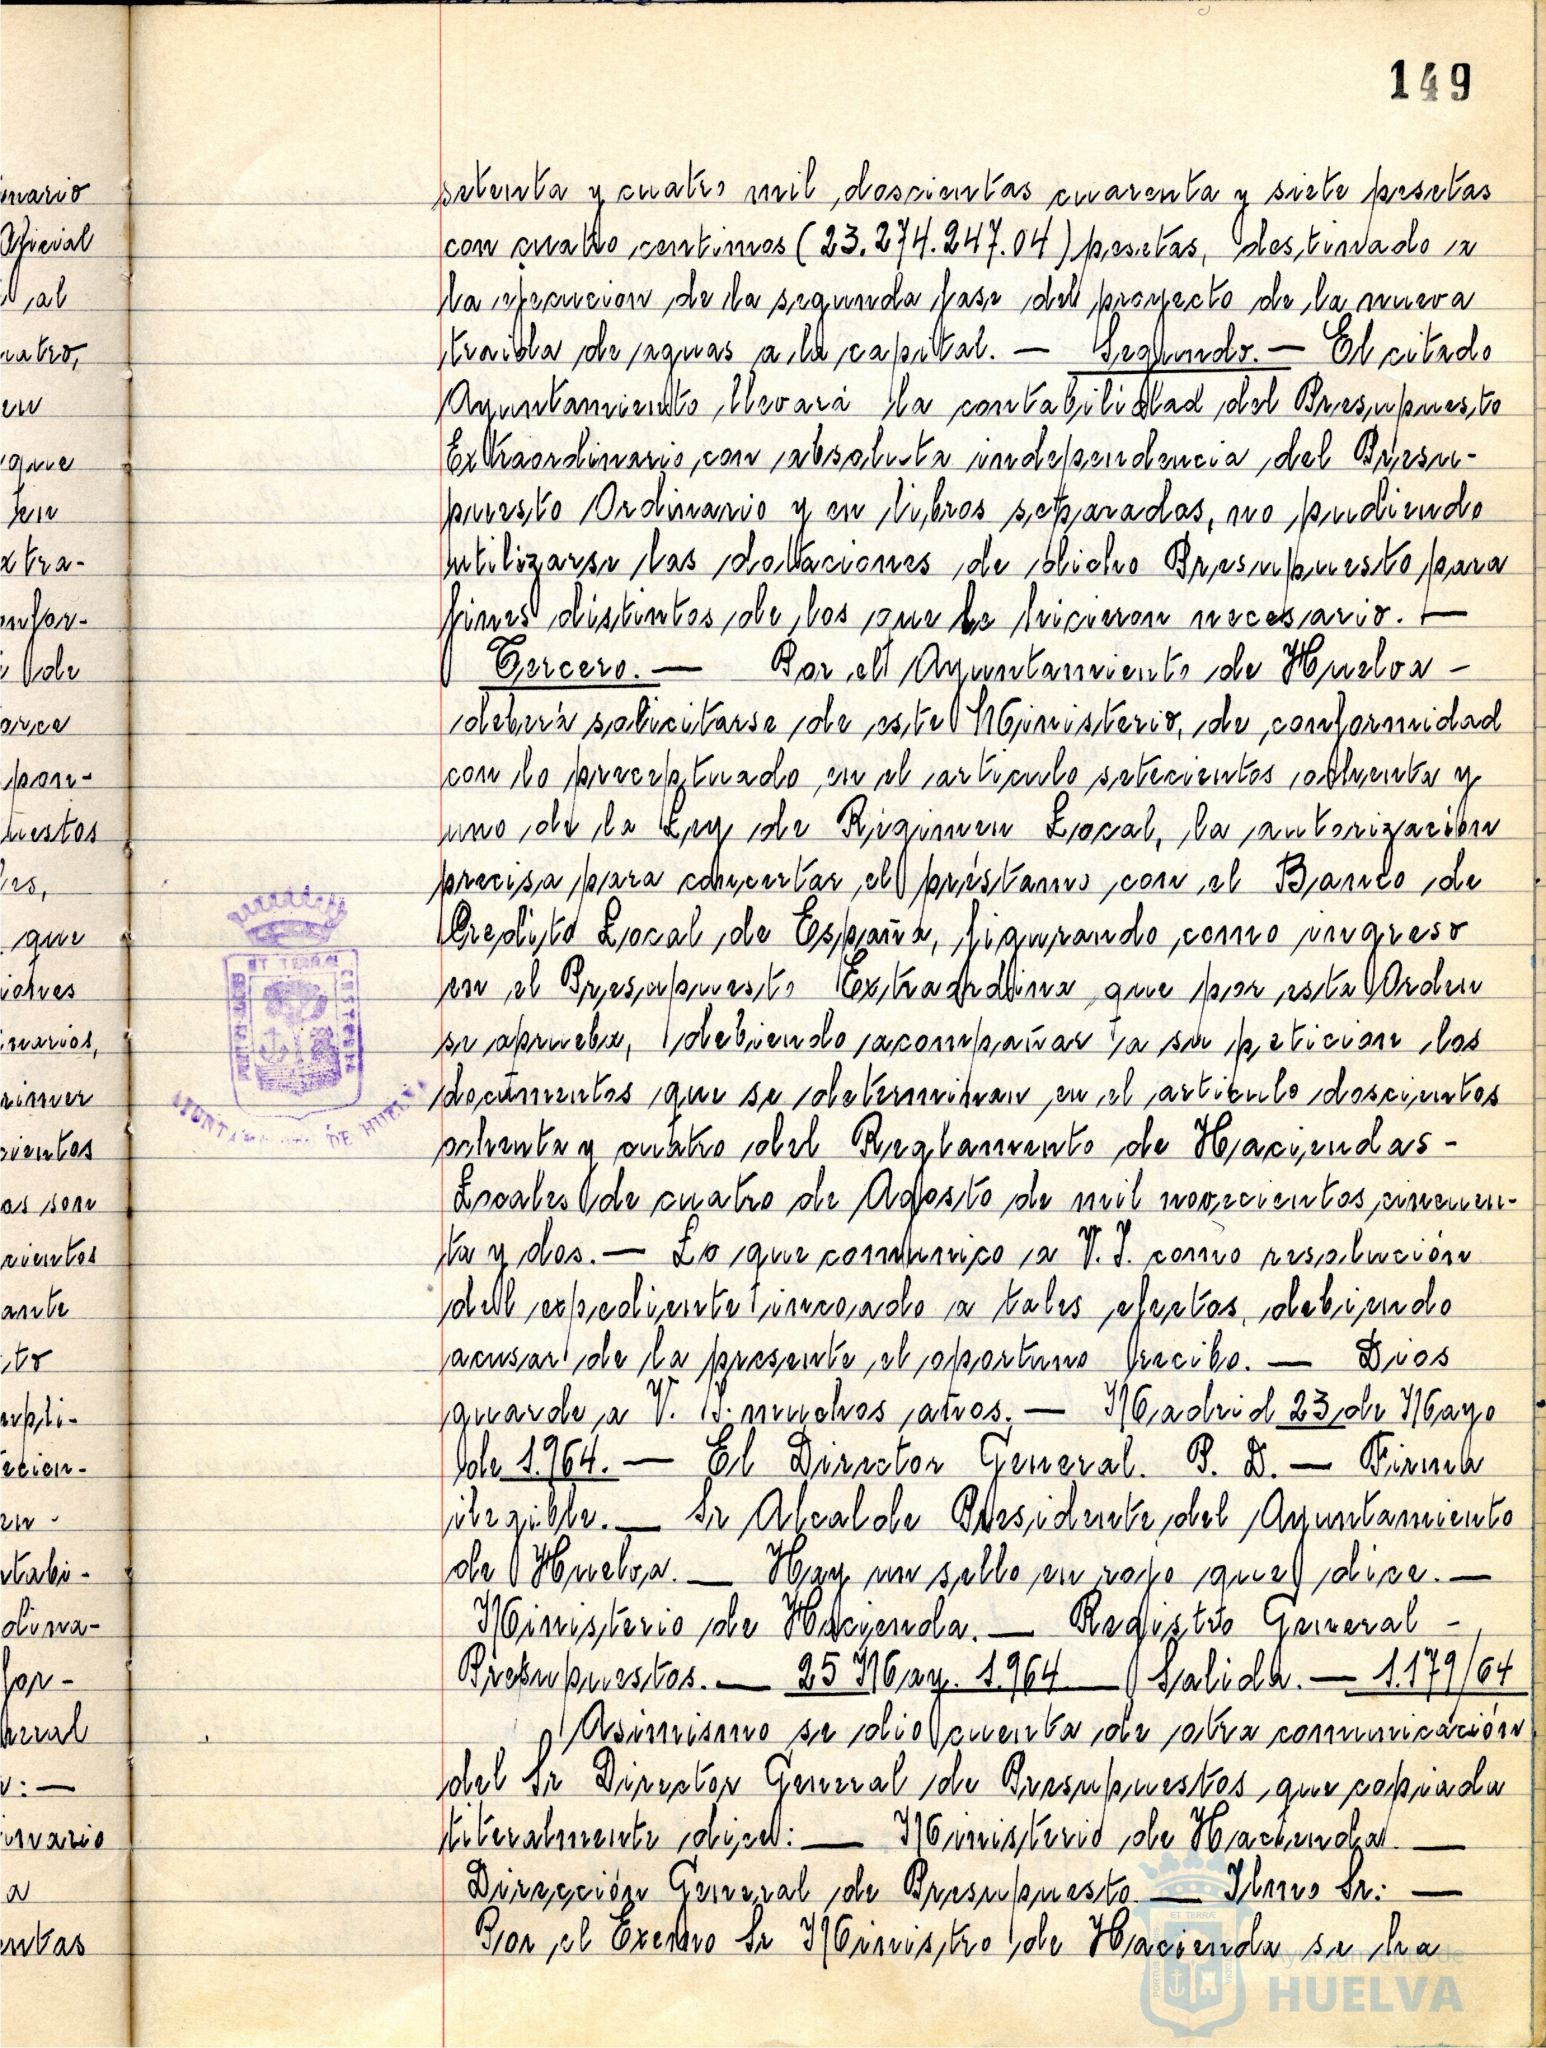 149
setenta y cuatro mil doscientas cuarenta y siete pesetas
con cuatro centimos (23.274.247.04) pesetas, destinado a
la ejecucion de la segunda fase del proyecto de la nueva
traida de aguas a la capital. — Segundo. — El citado
Ayuntamiento llevará la contabilidad del Presupuesto
Extraordinario con absoluta independencia del Presu-
puesto Ordinario y en libros separados, no pudiendo
utilizarse las dotaciones de dicho Presupuesto para
fines distintos de los que le hicieron necesario. —
Tercero. — Por el Ayuntamiento de Huelva -
deberá solicitarse de este Ministerio, de conformidad
con lo preceptuado en el articulo setecientos ochenta y
uno de la Ley de Régimen Local, la autorización
precisa para concertar el préstamo con el Banco de
Credito Local de España, figurando como ingreso
en el Presupuesto Extraordina que por esta Orden
se aprueba, debiendo acompañar a su peticion los
documentos que se determinan en el articulo doscientos
ochenta y cuatro del Reglamento de Haciendas -
Locales de cuatro de Agosto de mil novecientos cincuen-
ta y dos. — Lo que comunico a V. I. como resolución
del expediente incoado a tales efectos, debiendo
acusar de la presente el oportuno recibo. — Dios
guarde a V. I. muchos años. — Madrid 23 de Mayo
de 1.964. — El Director General. P. D. — Firma
ilegible. — Sr Alcalde Presidente del Ayuntamiento
de Huelva. — Hay un sello en rojo que dice. —
Ministerio de Hacienda. — Registro General -
Presupuestos. — 25 May. 1.964 — Salida. — 1.179/64
Asimismo se dio cuenta de otra comunicación
del Sr Director General de Presupuestos que copiada
literalmente dice: — Ministerio de Hacienda. —
Dirección General de Presupuesto — Ilmo Sr: —
Por el Excmo Sr Ministro de Hacienda se ha
inario
Oficial
al
uatro,
en
que
En
xtra-
nfor-
de
orce
pon-
uestos
es,
que
iones
inarios,
rimer
cientos
as son
cientos
ante
ito
mpli-
ecien-
en -
ntabi-
dina-
for-
neral
v: —
inario
a
entas
ET TERRAE
AYUNTAMIENTO DE HUELVA
Ayuntamiento de
HUELVA